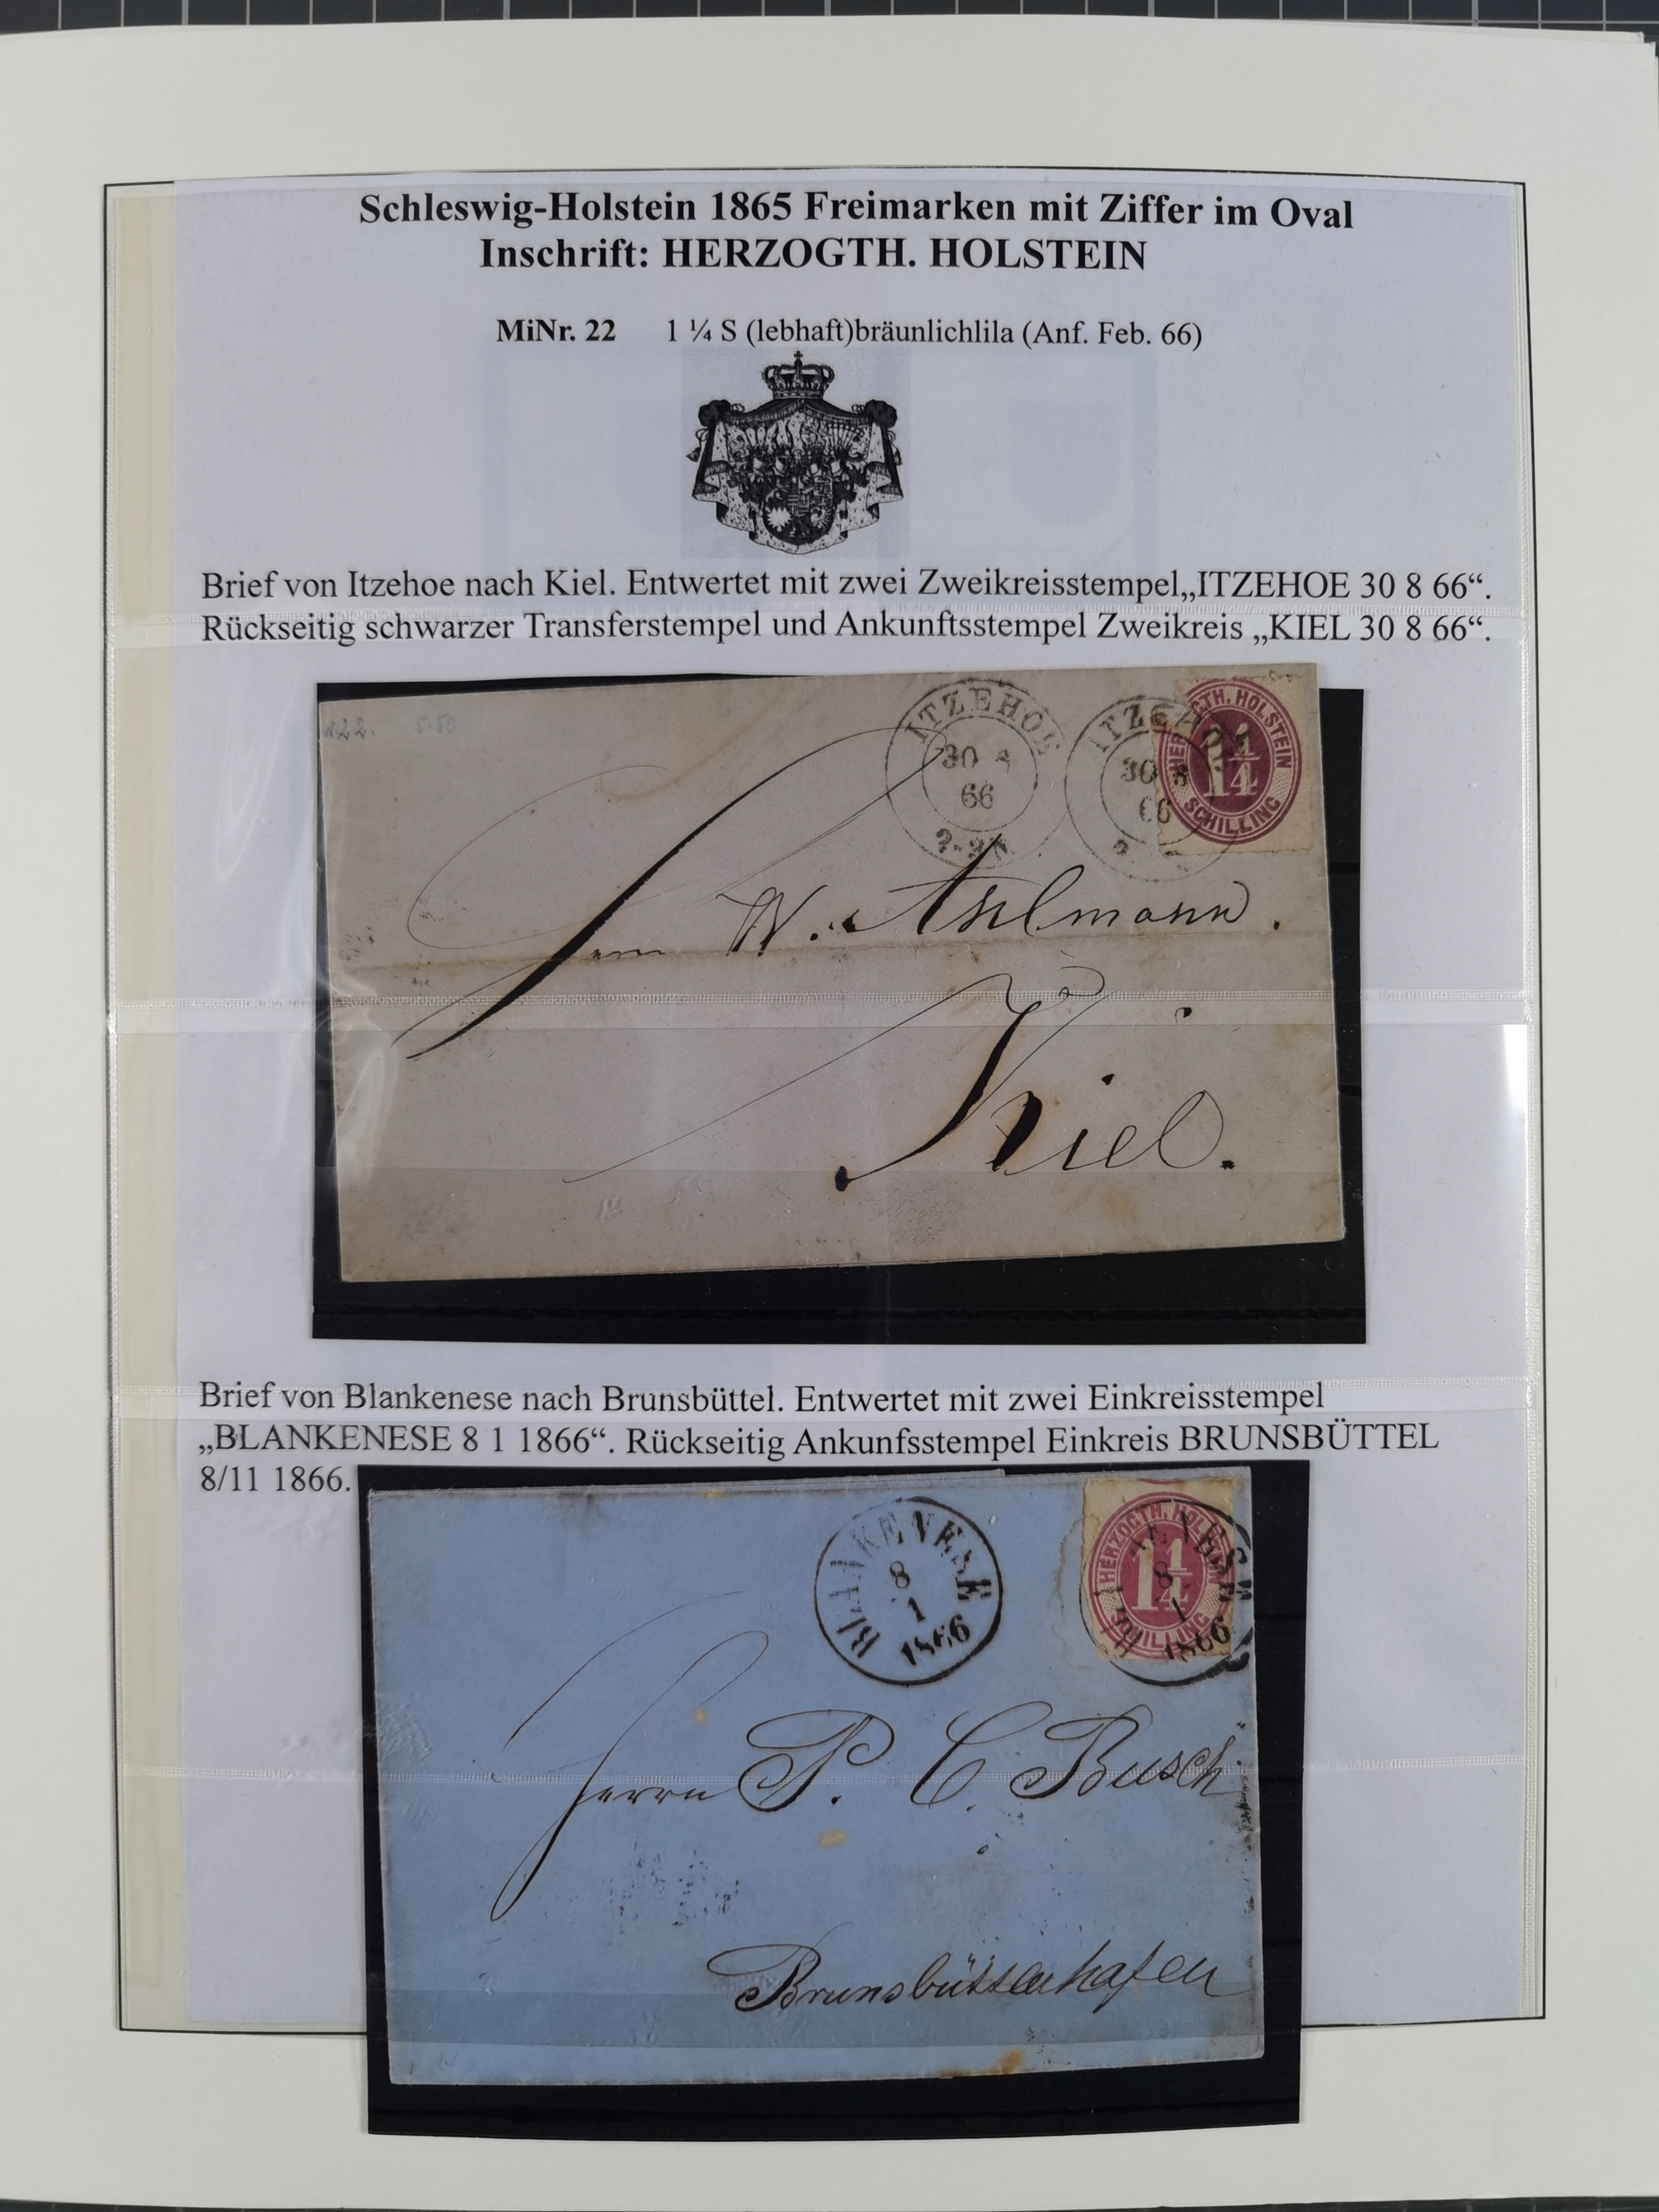 Schleswig-Holstein 1865 Freimarken mit Ziffer im Oval
Inschrift: HERZOGTH. HOLSTEIN
MiNr. 22 1 ¼ S (lebhaft)bräunlichlila (Anf. Feb. 66)
Brief von Itzehoe nach Kiel. Entwertet mit zwei Zweikreisstempel„ITZEHOE 30 8 66“.
Rückseitig schwarzer Transferstempel und Ankunftsstempel Zweikreis „KIEL 30 8 66“.
ITZEHOE
30 8
66
ITZEH
30 8
66
HERZOGTH. HOLSTEIN
1¼
SCHILLING
W.
Kiel.
Brief von Blankenese nach Brunsbüttel. Entwertet mit zwei Einkreisstempel
„BLANKENESE 8 1 1866“. Rückseitig Ankunfsstempel Einkreis BRUNSBÜTTEL
8/11 1866.
BLANKENESE
8
1
1866
HERZOGTH. HOL
1¼
SCHILLING
KENESE
8
1
1866
Herrn P. C. Busch
Brunsbüttelerhafen